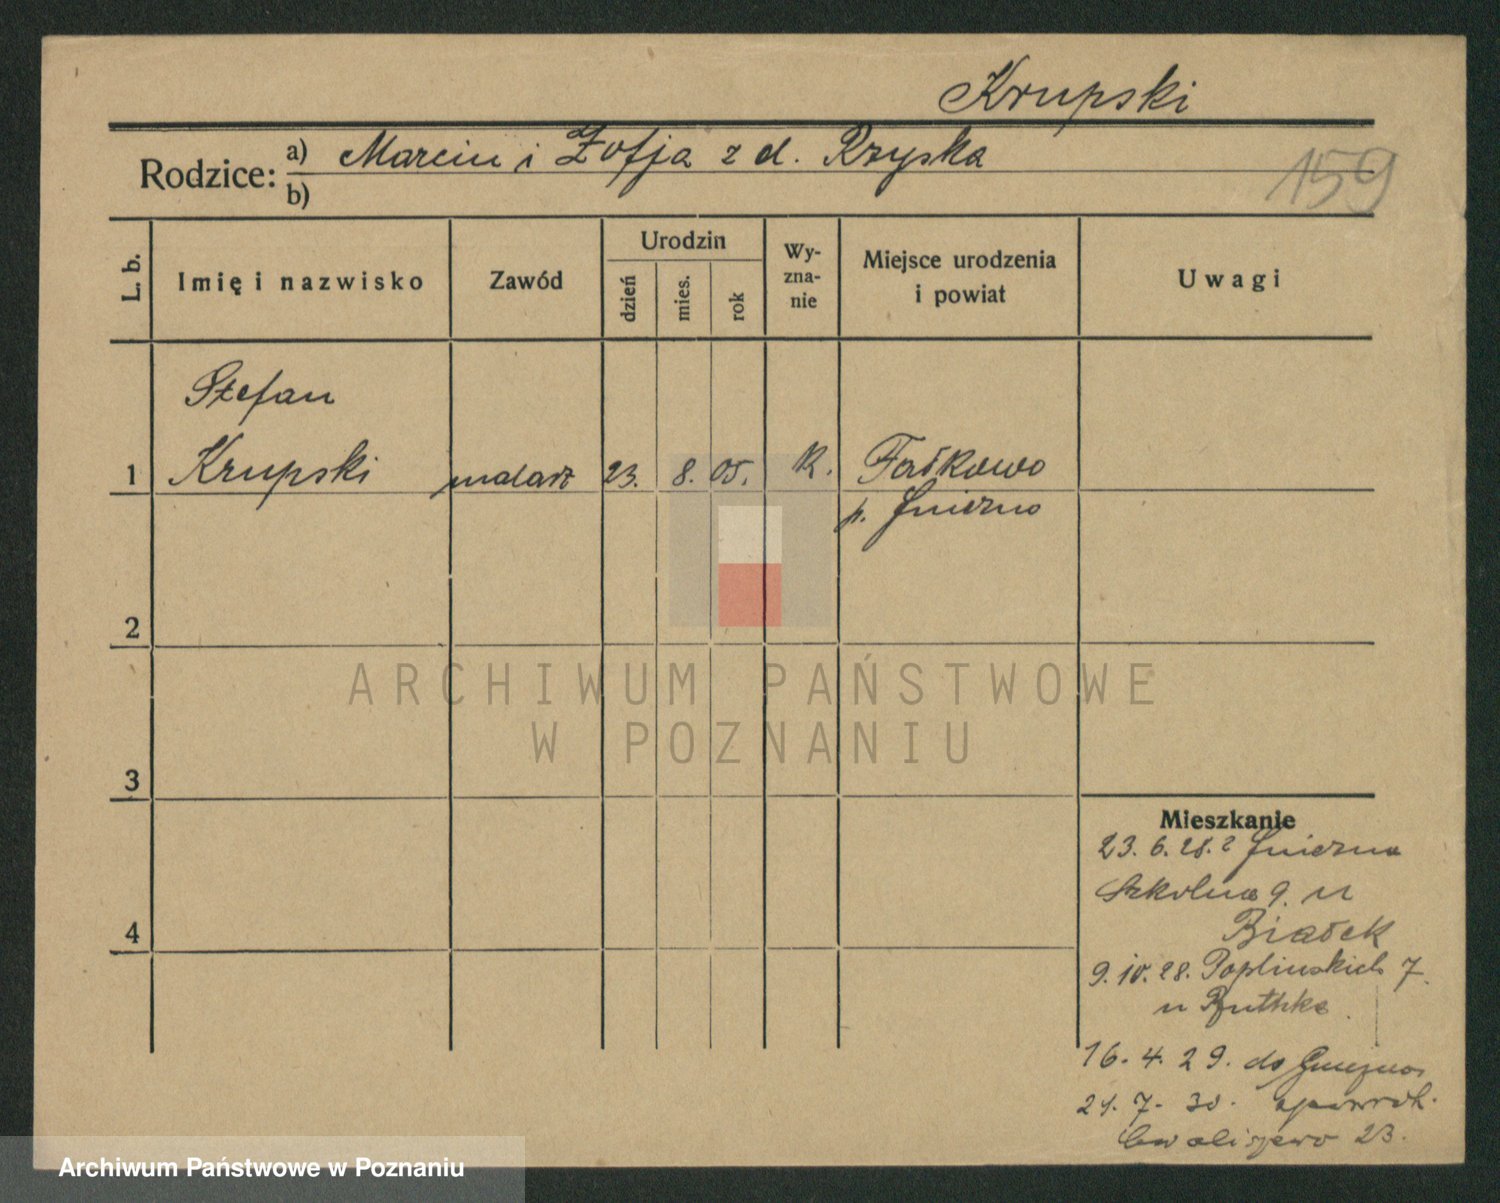 Krupski
Rodzice:
a) Marcin i Zofja z d. Rzyska
b)
159
L. b.
Imię i nazwisko
Zawód
Urodzin
dzień
mies.
rok
Wy-
zna-
nie
Miejsce urodzenia
i powiat
Uwagi
Stefan
1 Krupski malarz 23. 8. 05. R. Fałkowo
p. Gniezno
2
3
4
ARCHIWUM PAŃSTWOWE
W POZNANIU
Mieszkanie
23. 6. 28. z Gniezna
Szkolna 9. u
Białek
9. 10. 28. Poplińskich 7.
u
16. 4. 29. do Gniezna
21. 7. 30.
Chwaliszewo 23.
Archiwum Państwowe w Poznaniu